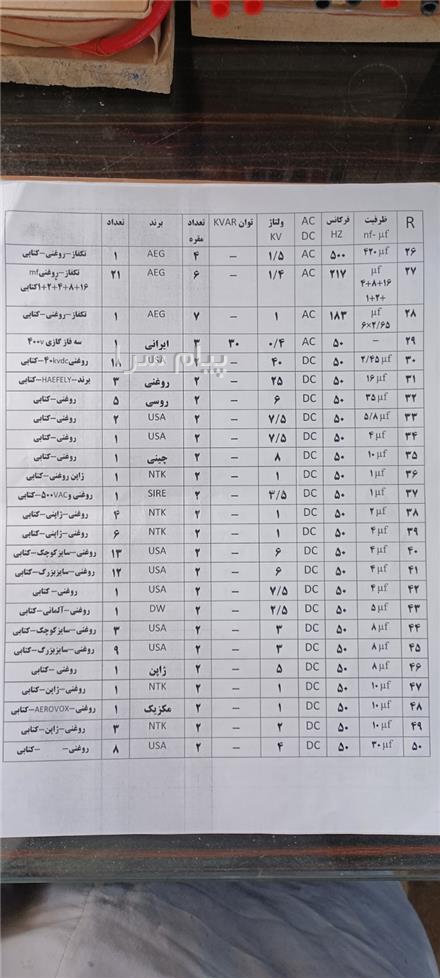 R ظرفیت nf- µf فرکانس HZ AC DC ولتاژ KV توان KVAR تعداد مقره برند تعداد
۲۶ ۴۲۰ µf ۵۰۰ AC ۱/۵ – ۴ AEG ۱ تکفاز–روغنی–کتابی
۲۷ µf ۴+۸+۱۶ +۲+۱ ۲۱۷ AC ۱/۴ – ۶ AEG ۲۱ تکفاز–روغنی mf ۱۶+۸+۴+۲+۱کتابی
۲۸ µf ۶×۲/۶۵ ۱۸۳ AC ۱ – ۷ AEG ۱ تکفاز–روغنی–کتابی
۲۹ – ۵۰ AC ۰/۴ ۳۰ ۳ ایرانی ۱ سه فاز گازی ۴۰۰v
۳۰ ۲/۴۵ µf ۵۰ DC ۴۰ – ۲ USA روغنی ۴۰kvdc–کتابی
۳۱ ۱۶ µf ۵۰ DC ۲۵ – ۲ روغنی ۳ برند–HAEFELY–کتابی
۳۲ ۳۵ µf ۵۰ DC ۶ – ۲ روسی ۵ روغنی–کتابی
۳۳ ۵/۸ µf ۵۰ DC ۷/۵ – ۲ USA ۲ روغنی–کتابی
۳۴ ۴ µf ۵۰ DC ۷/۵ – ۲ USA ۱ روغنی–کتابی
۳۵ ۱۰ µf ۵۰ DC ۸ – ۲ چینی ۱ روغنی–کتابی
۳۶ ۱ µf ۵۰ DC ۱ – ۲ NTK ۱ ژاپن روغنی–کتابی
۳۷ ۱ µf ۵۰ DC ۳/۵ – ۲ SIRE ۱ روغنی و ۵۰۰VAC–کتابی
۳۸ ۲ µf ۵۰ DC ۱ – ۲ NTK ۴ روغنی–ژاپنی–کتابی
۳۹ ۴ µf ۵۰ DC ۱ – ۲ NTK ۶ روغنی–ژاپنی–کتابی
۴۰ ۴ µf ۵۰ DC ۶ – ۲ USA ۱۳ روغنی–سایزکوچک–کتابی
۴۱ ۴ µf ۵۰ DC ۶ – ۲ USA ۱۲ روغنی–سایزبزرگ–کتابی
۴۲ ۴ µf ۵۰ DC ۷/۵ – ۲ USA ۱ روغنی – کتابی
۴۳ ۵ µf ۵۰ DC ۲/۵ – ۲ DW ۱ روغنی–آلمانی–کتابی
۴۴ ۸ µf ۵۰ DC ۳ – ۲ USA ۳ روغنی–سایزکوچک–کتابی
۴۵ ۸ µf ۵۰ DC ۳ – ۲ USA ۹ روغنی–سایزبزرگ–کتابی
۴۶ ۸ µf ۵۰ DC ۵ – ۲ ژاپن ۱ روغنی –کتابی
۴۷ ۱۰ µf ۵۰ DC ۱ – ۲ NTK ۱ روغنی–ژاپن–کتابی
۴۸ ۱۰ µf ۵۰ DC ۱ – ۲ مکزیک ۱ روغنی–AEROVOX–کتابی
۴۹ ۱۰ µf ۵۰ DC ۲ – ۲ NTK ۳ روغنی–ژاپن–کتابی
۵۰ ۳۰ µf ۵۰ DC ۴ – ۲ USA ۸ روغنی– –کتابی
پیام سرا